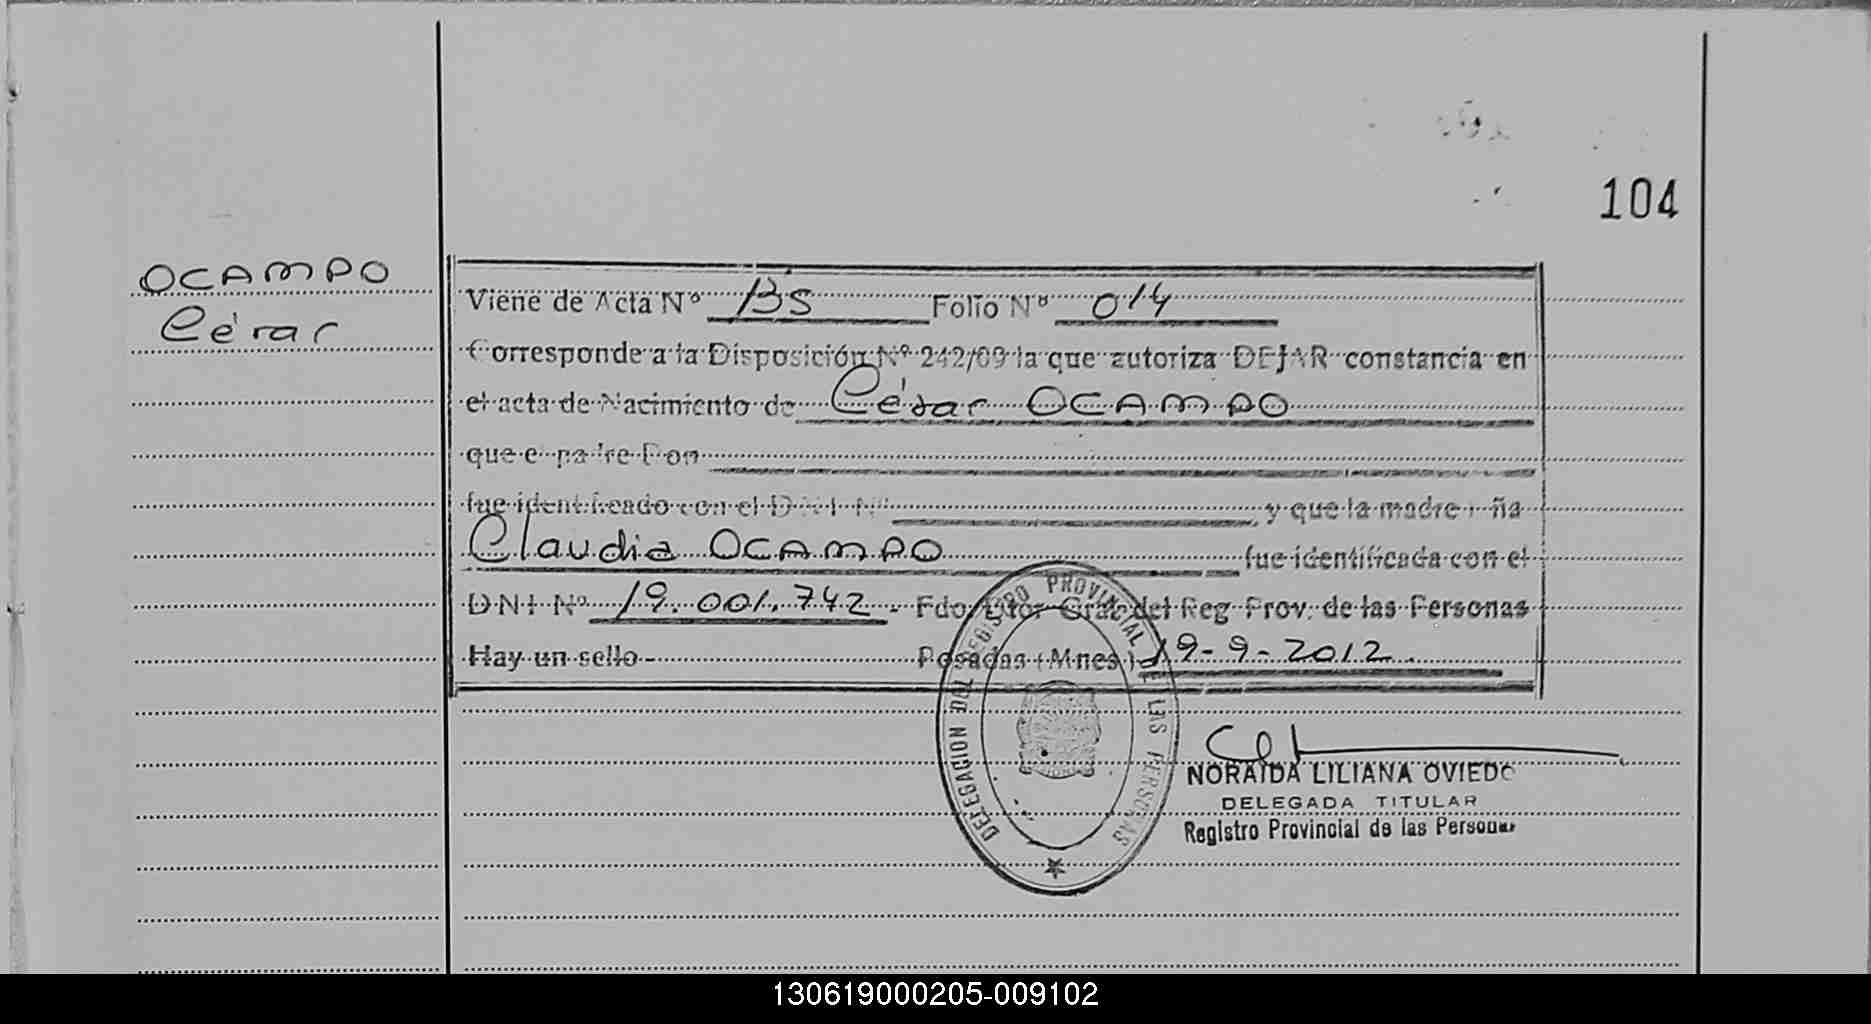 104
OCAMPO
César
Viene de Acta Nº 13S Folio Nº 014
Corresponde a la Disposición Nº 242/09 la que autoriza DEJAR constancia en
el acta de Nacimiento de César OCAMPO
que el padre Don
fue identificado con el D N I Nº y que la madre ña
Claudia OCAMPO fue identificada con el
DNI Nº 19.001.742. Fdo. Dtor Gral del Reg Prov. de las Personas
Hay un sello- Posadas (Mnes) 19-9-2012.
DELEGACION DEL REGISTRO PROVINCIAL DE LAS PERSONAS
NORAIDA LILIANA OVIEDO
DELEGADA TITULAR
Registro Provincial de las Personas
130619000205-009102